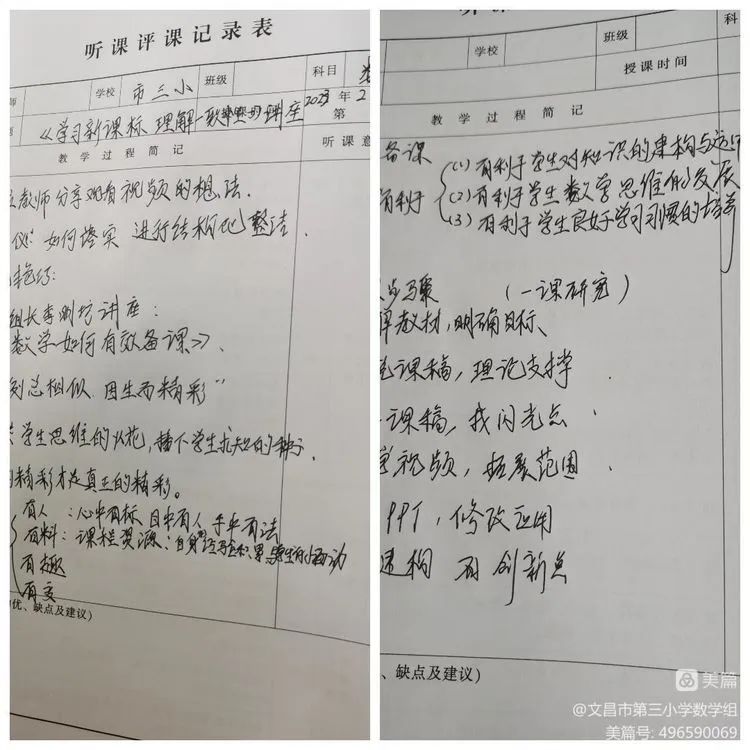 听课评课记录表
师 学校 市三小 班级 科目
《学习新课标 理解一致性》的讲座 2023年2
第
教学过程简记 听课意
教师分享观看视频的想法.
仪: 如何落实 进行结构化整洁.
组长李 坊讲座:
数学如何有效备课》、
刻总相似 因生而精彩”
学生思维的火花, 播下学生求知的种子.
精彩才是真正的精彩。
有人: 心中有标 目中有人 手中有法
有料: 课程资源、自身 学生的 动
有趣
有文
优、缺点及建议)
听课
学校 班级 科
授课时间
教学过程简记
备课
有利于
(1) 有利于学生对知识的建构与运用
(2) 有利于学生数学思维的发展
(3) 有利于学生良好学习习惯的培养
步骤 (一课研究)
教材, 明确目标、
课稿, 理论支撑.
课稿, 找闪光点.
视频, 拓展范围.
PPT, 修改应用
建构 有创新点
、缺点及建议)
美篇
@文昌市第三小学数学组
美篇号: 496590069